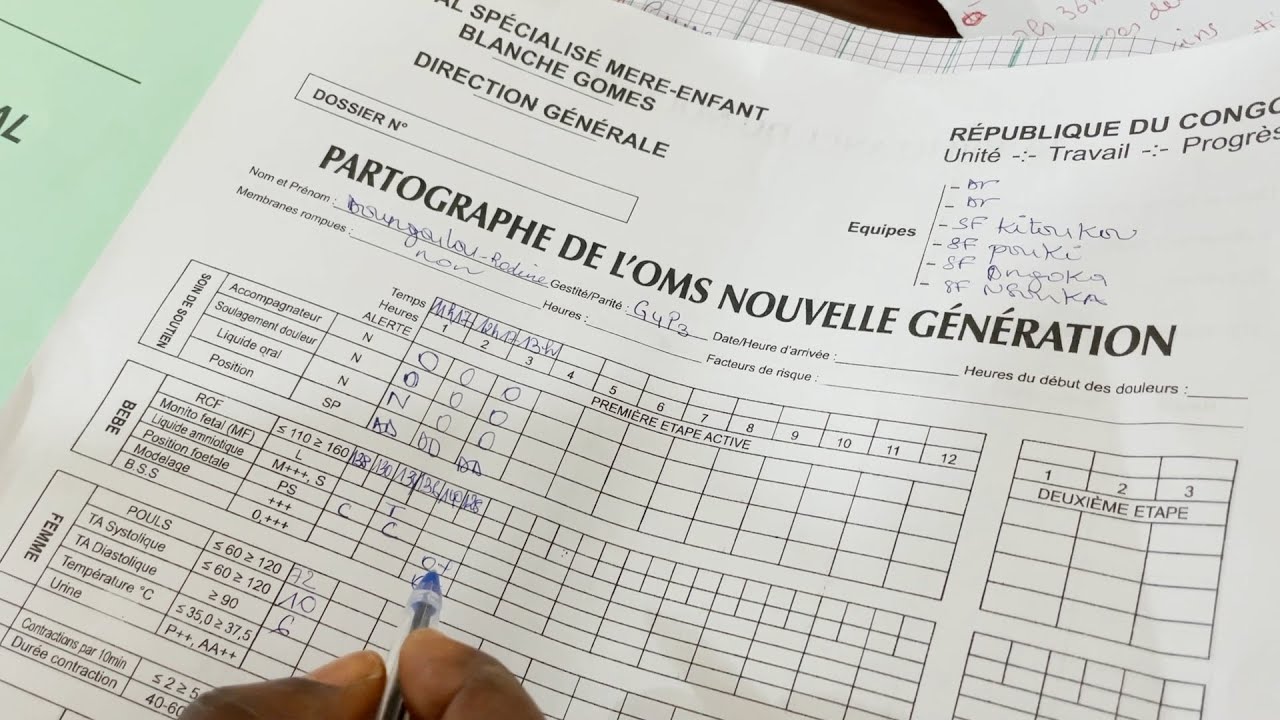 AL SPÉCIALISÉ MERE-ENFANT
BLANCHE GOMES
DIRECTION GÉNÉRALE
RÉPUBLIQUE DU CONGO
Unité -:- Travail -:- Progrès
DOSSIER N°
Equipes
- Dr
- Dr
- SF Kitoukou
- SF pouki
- SF Ongoka
- SF NSONKA
PARTOGRAPHE DE L'OMS NOUVELLE GÉNÉRATION
Nom et Prénom : Gestité/Parité : G4P3 Date/Heure d'arrivée : Heures du début des douleurs :
Membranes rompues : non Heures : Facteurs de risque :
SOIN DE SOUTIEN
Temps
Heures 1 2 3 4 5 6 7 8 9 10 11 12
ALERTE PREMIÈRE ETAPE ACTIVE
Accompagnateur N O O O
Soulagement douleur N O O O
Liquide oral N N O O
Position SP
1 2 3
DEUXIÈME ETAPE
BEBE
RCF ≤ 110 ≥ 160
Monito fetal (MF) L
Liquide amniotique M+++, S C I
Position foetale PS C
Modelage +++
B.S.S 0,+++
FEMME
POULS ≤ 60 ≥ 120 72
TA Systolique ≤ 60 ≥ 120 10
TA Diastolique ≥ 90 6
Température °C ≤ 35,0 ≥ 37,5
Urine P++, AA++
Contractions par 10min ≤ 2 ≥ 5
Durée contraction 40-60